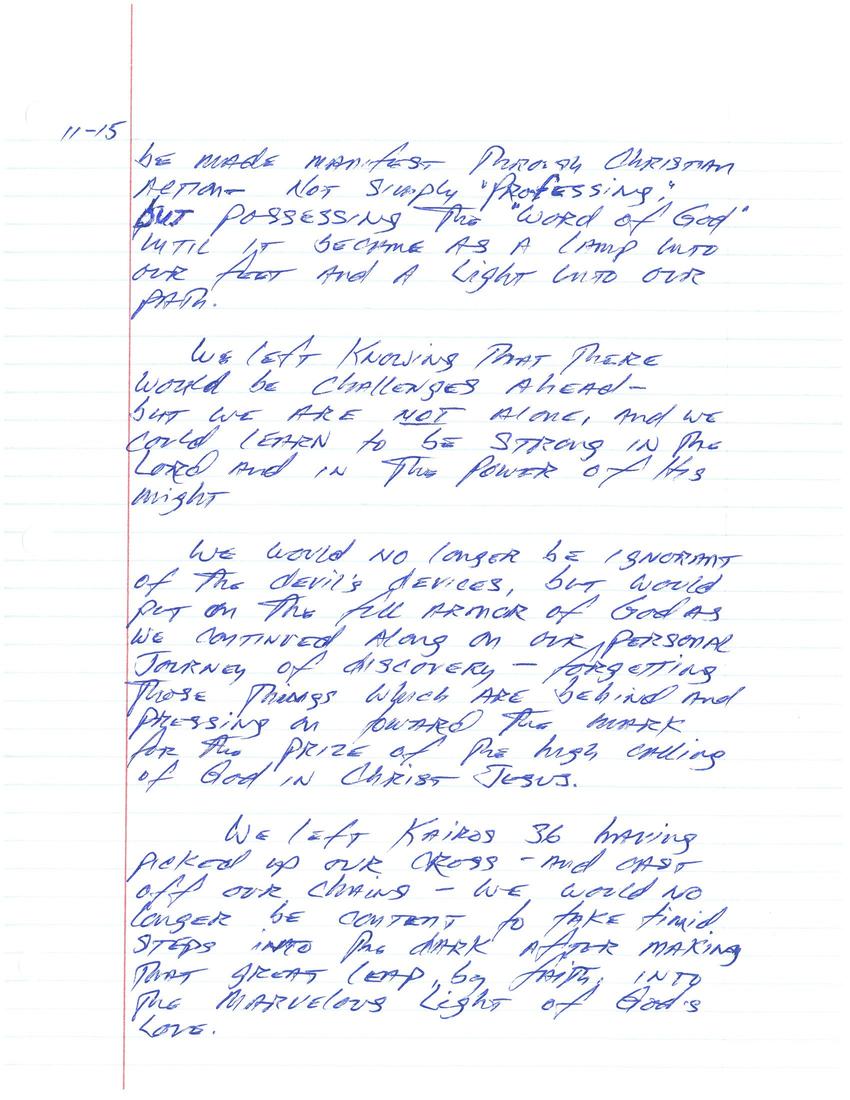 11-15
be made manifest through Christian
action — not simply "professing,"
but possessing the "Word of God"
until it became as a lamp unto
our feet and a light unto our
path.
We left knowing that there
would be challenges ahead —
but we are not alone, and we
could learn to be strong in the
Lord and in the power of His
might
We would no longer be ignorant
of the devil's devices, but would
put on the full armor of God as
we continued along on our personal
journey of discovery — forgetting
those things which are behind and
pressing on toward the mark
for the prize of the high calling
of God in Christ Jesus.
We left Kairos 36 having
picked up our cross — and cast
off our chains — we would no
longer be content to take timid
steps into the dark after making
that great leap, by faith, into
the marvelous light of God's
love.